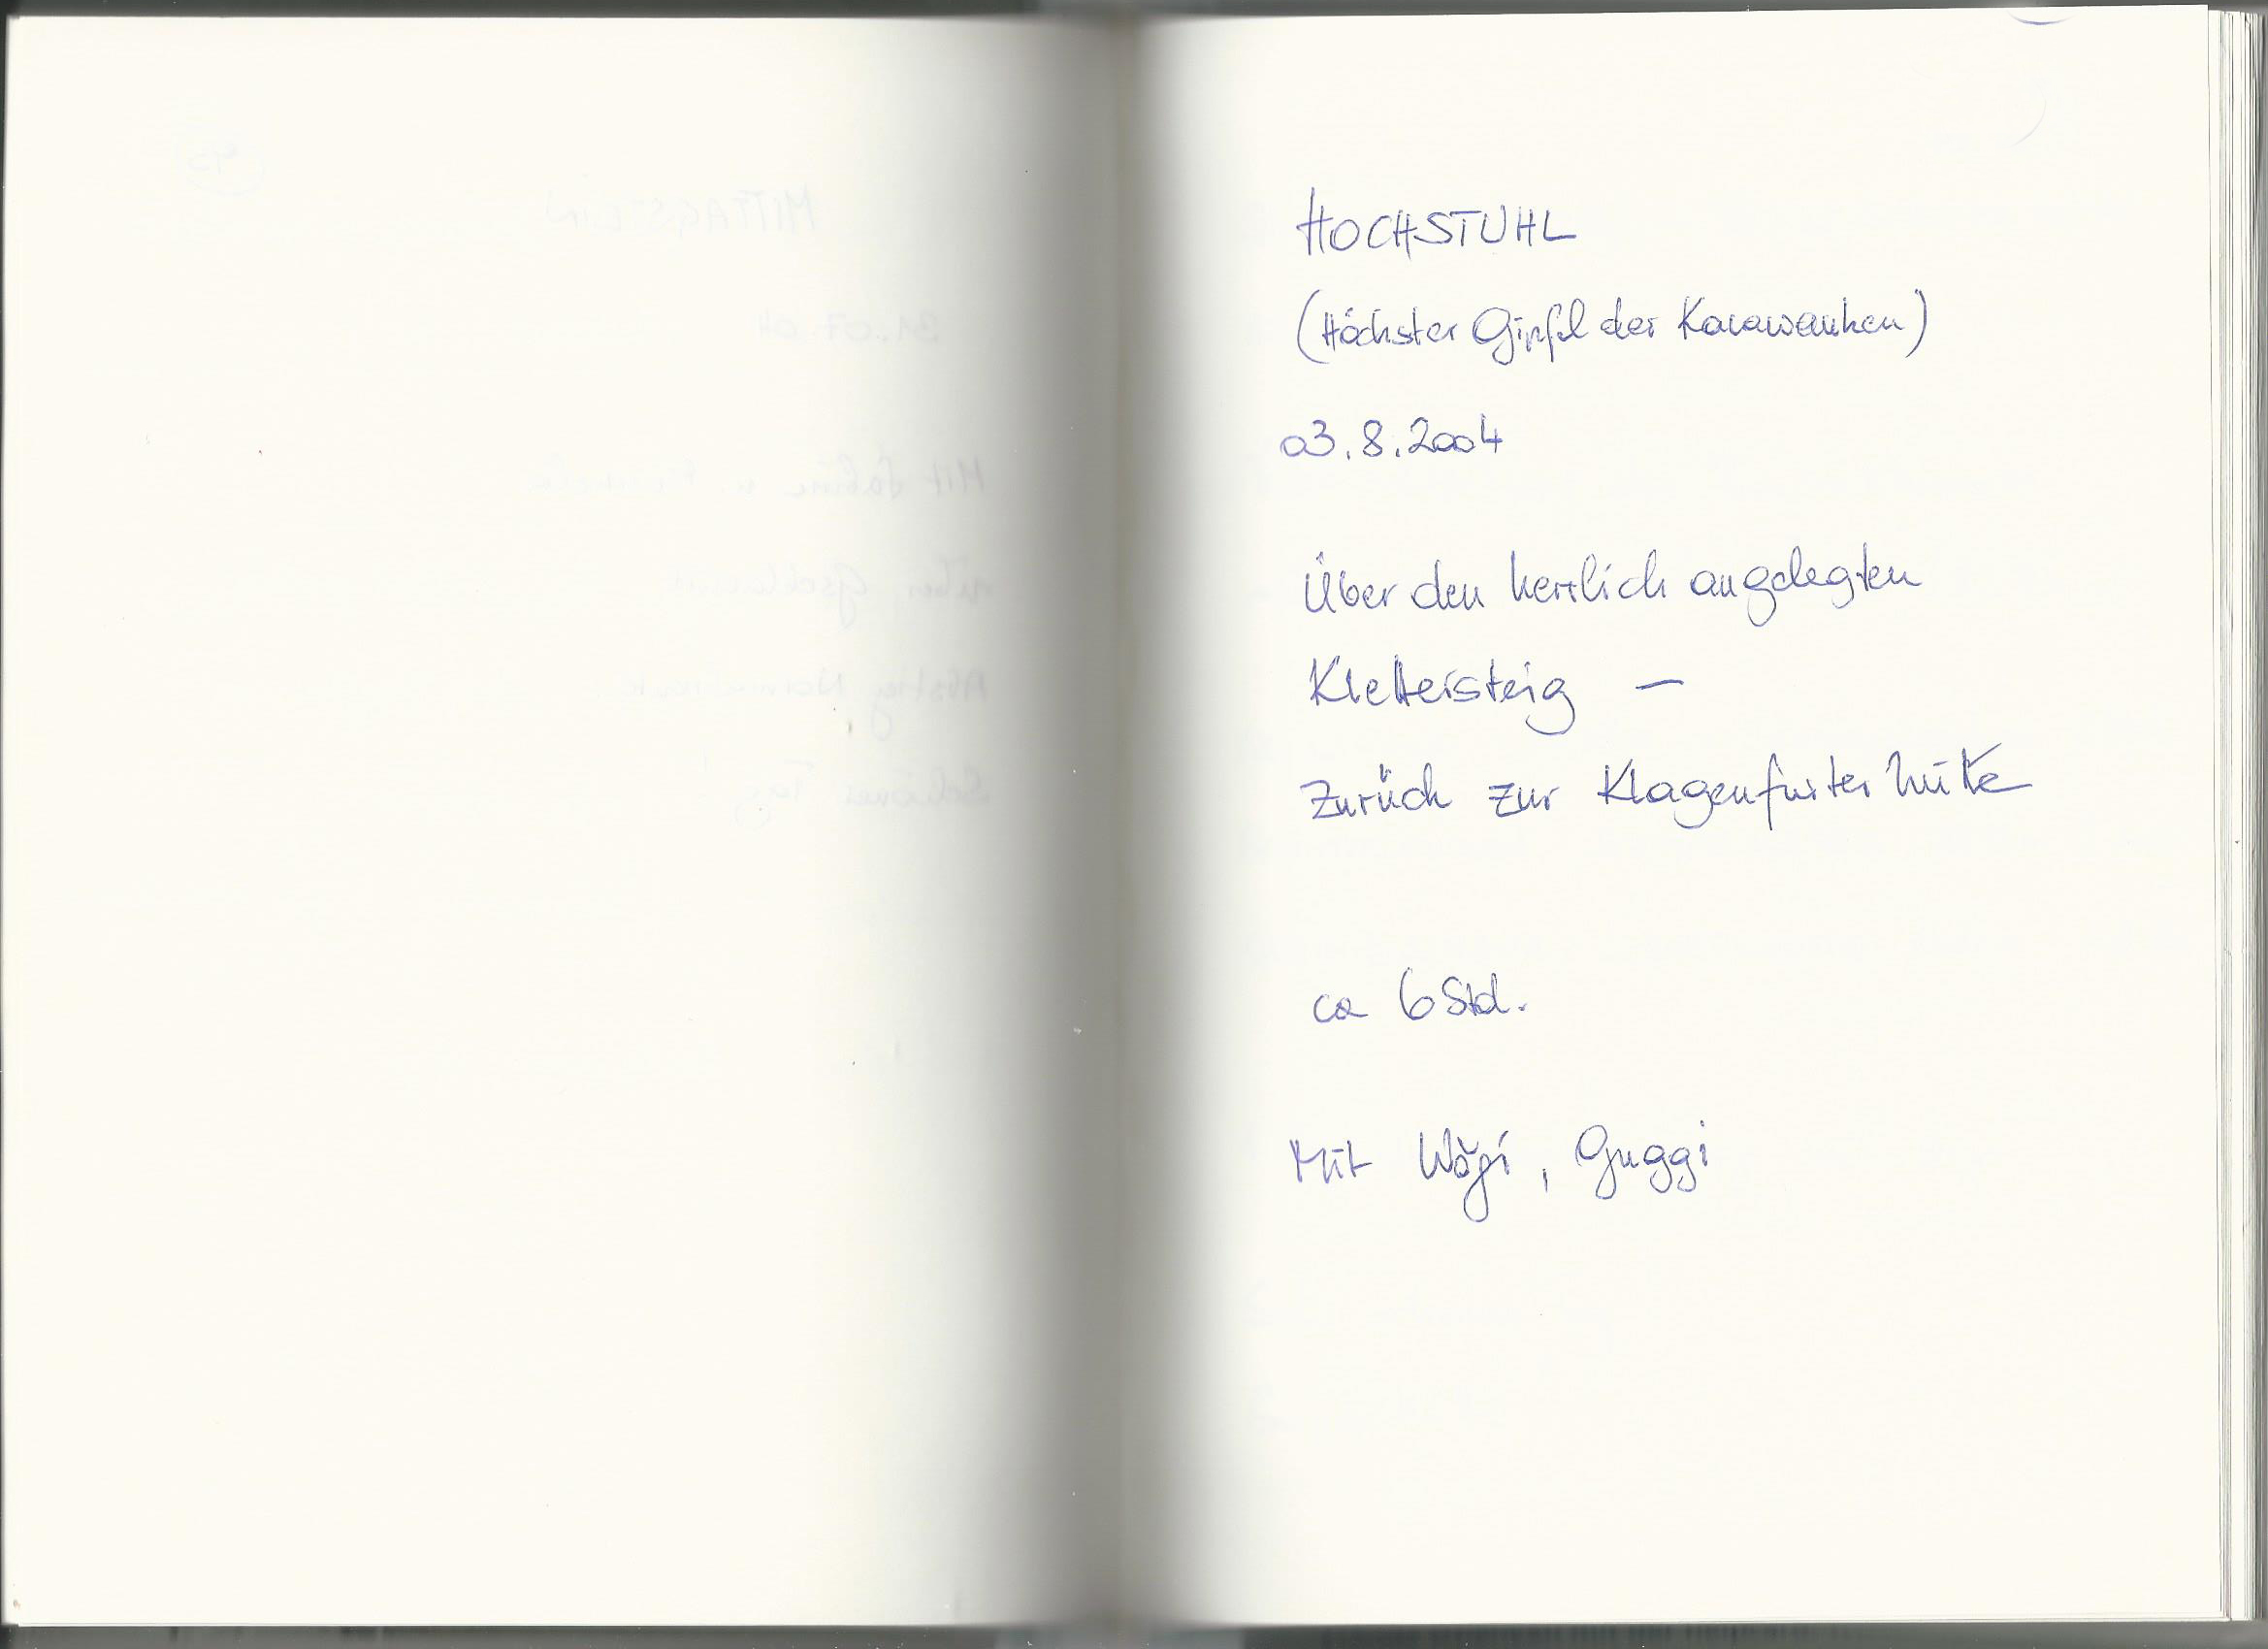 HOCHSTUHL
(Höchster Gipfel der Karawanken)
03.8.2004
Über den herrlich angelegten
Klettersteig –
Zurück zur Klagenfurter Hütte
ca 6 Std.
Mit Wögi, Guggi